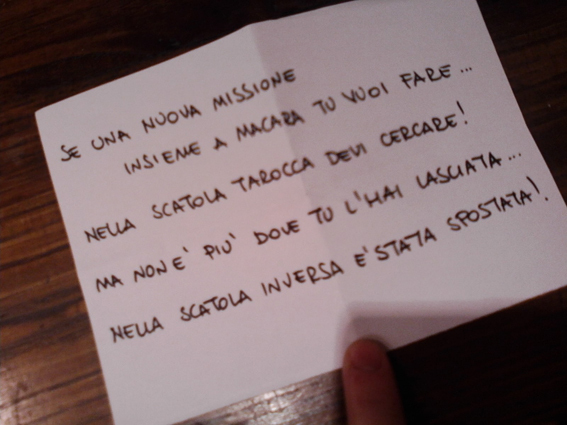 SE UNA NUOVA MISSIONE
INSIEME A MACARA TU VUOI FARE...
NELLA SCATOLA TAROCCA DEVI CERCARE!
MA NON E' PIU' DOVE TU L'HAI LASCIATA...
NELLA SCATOLA INVERSA E' STATA SPOSTATA!.